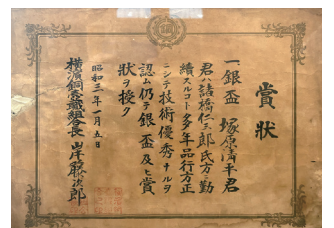 賞狀
一銀盃 塚原清平君
君ハ諸橋仁三郎氏方ニ勤
續スルコト多年品行方正
ニシテ技術優秀ナルヲ
認ム仍テ銀盃及ヒ賞
狀ヲ授ク
昭和三年一月五日
横濱銅工業組合長 岸藤次郎